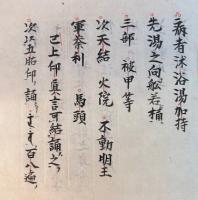 病者沐浴湯加持
先湯之向般若桶
三部 被甲等
次天結 火院 不動明王
軍荼利 馬頭
已上仰真言可結誦之
次江五胎印誦 百八遍